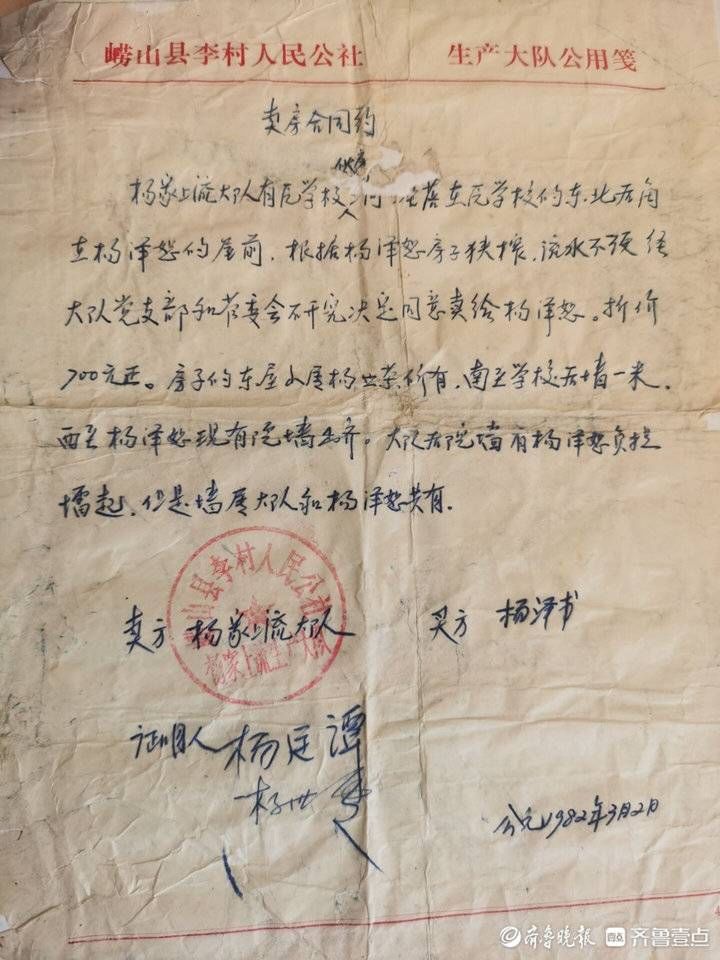 崂山县李村人民公社 生产大队公用笺
卖房合同约
伙房
杨家上流大队有瓦学校 间 座落在瓦学校的东北后角
在杨泽恕的屋前，根据杨泽恕房子狭榨，流水不须经
大队党支部和管委会研究决定同意卖给杨泽恕。折价
700元正。房子的东屋 属杨 所有，南至学校后墙一米，
西至杨泽恕现有院墙 齐。大队后院墙有杨泽恕负担
垒起，但是墙属大队和杨泽恕共有。
崂山县李村人民公社
杨家上流生产大队
卖方 杨家上流大队 买方 杨泽书
证明人 杨廷谭
杨世
公元1982年3月2日
齐鲁晚报 齐鲁壹点